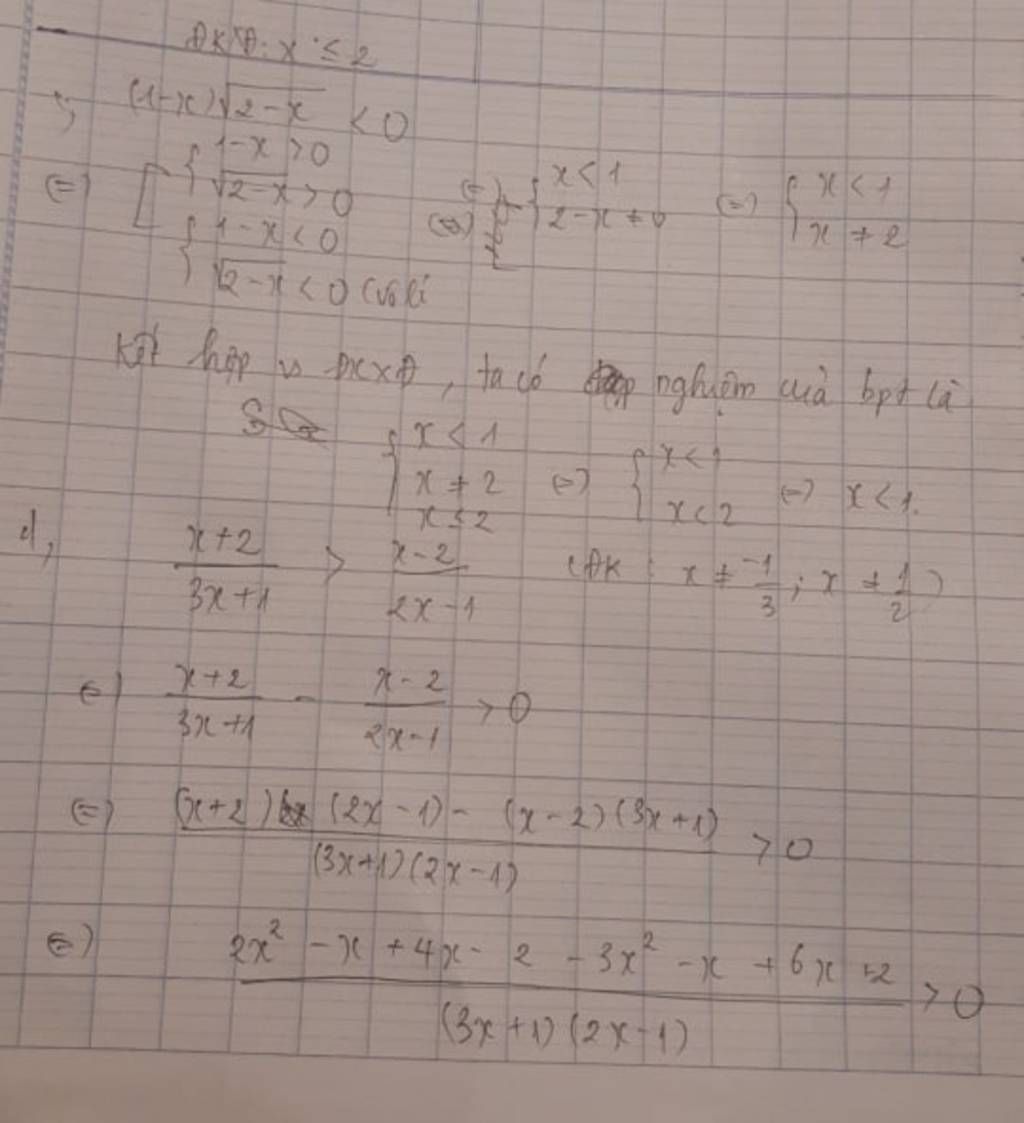 ĐKXĐ: x ≤ 2
c, (1-x)√(2-x) < 0
(=) [ { 1-x > 0
√(2-x) > 0
{ 1-x < 0
√(2-x) < 0 (vô lí
(=) { x < 1
2-x ≠ 0
(=) { x < 1
x ≠ 2
Kết hợp vs ĐKXĐ, ta có nghiệm của bpt là
{ x < 1
x ≠ 2
x ≤ 2
(=) { x < 1
x < 2
(=) x < 1.
d, (x+2)/(3x+1) > (x-2)/(2x-1) (ĐK: x ≠ -1/3; x ≠ 1/2)
(=) (x+2)/(3x+1) - (x-2)/(2x-1) > 0
(=) ((x+2)(2x-1) - (x-2)(3x+1))/((3x+1)(2x-1)) > 0
(=) (2x² - x + 4x - 2 - 3x² - x + 6x + 2)/((3x+1)(2x-1)) > 0